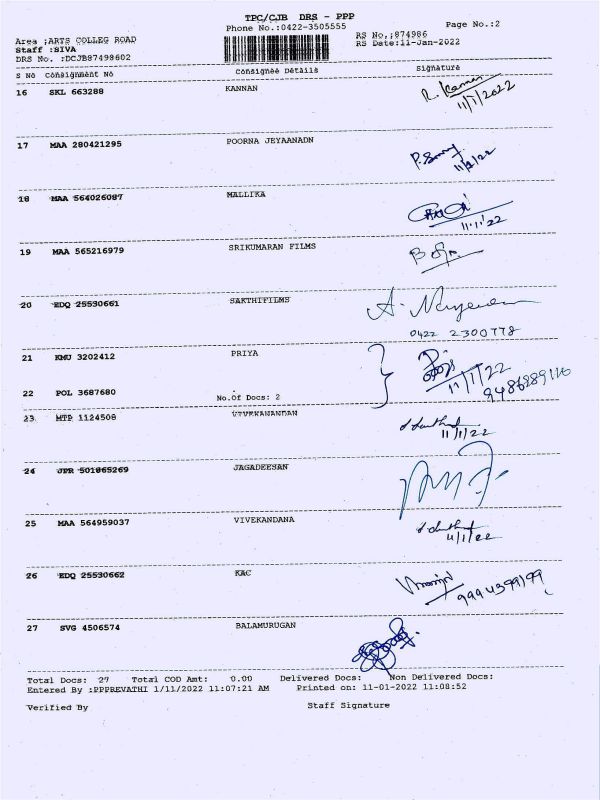 TPC/CJB DRS - PPP
Phone No.:0422-3505555
Page No.:2
Area :ARTS COLLEG ROAD
Staff :SIVA
DRS No. :DCJB87498602
RS No.:874986
RS Date:11-Jan-2022
S No Consignment No Consignee Details Signature
16 SKL 663288 KANNAN R. Kannan
11/1/2022
17 MAA 280421295 POORNA JEYAANADN
11/1/22
18 MAA 564026087 MALLIKA
11/1/22
19 MAA 565216979 SRIKUMARAN FILMS
20 EDQ 25530661 SAKTHIFILMS
0422 2300778
21 KMU 3202412 PRIYA
11/1/22
22 POL 3687680 No.Of Docs: 2
9486289110
23 MTP 1124508 VIVEKANANDAN
11/1/22
24 JPR 501865269 JAGADEESAN
25 MAA 564959037 VIVEKANDANA
11/1/22
26 EDQ 25530662 KAC
9994399199
27 SVG 4506574 BALAMURUGAN
Total Docs: 27 Total COD Amt: 0.00 Delivered Docs: Non Delivered Docs:
Entered By :PPPREVATHI 1/11/2022 11:07:21 AM Printed on: 11-01-2022 11:08:52
Verified By Staff Signature